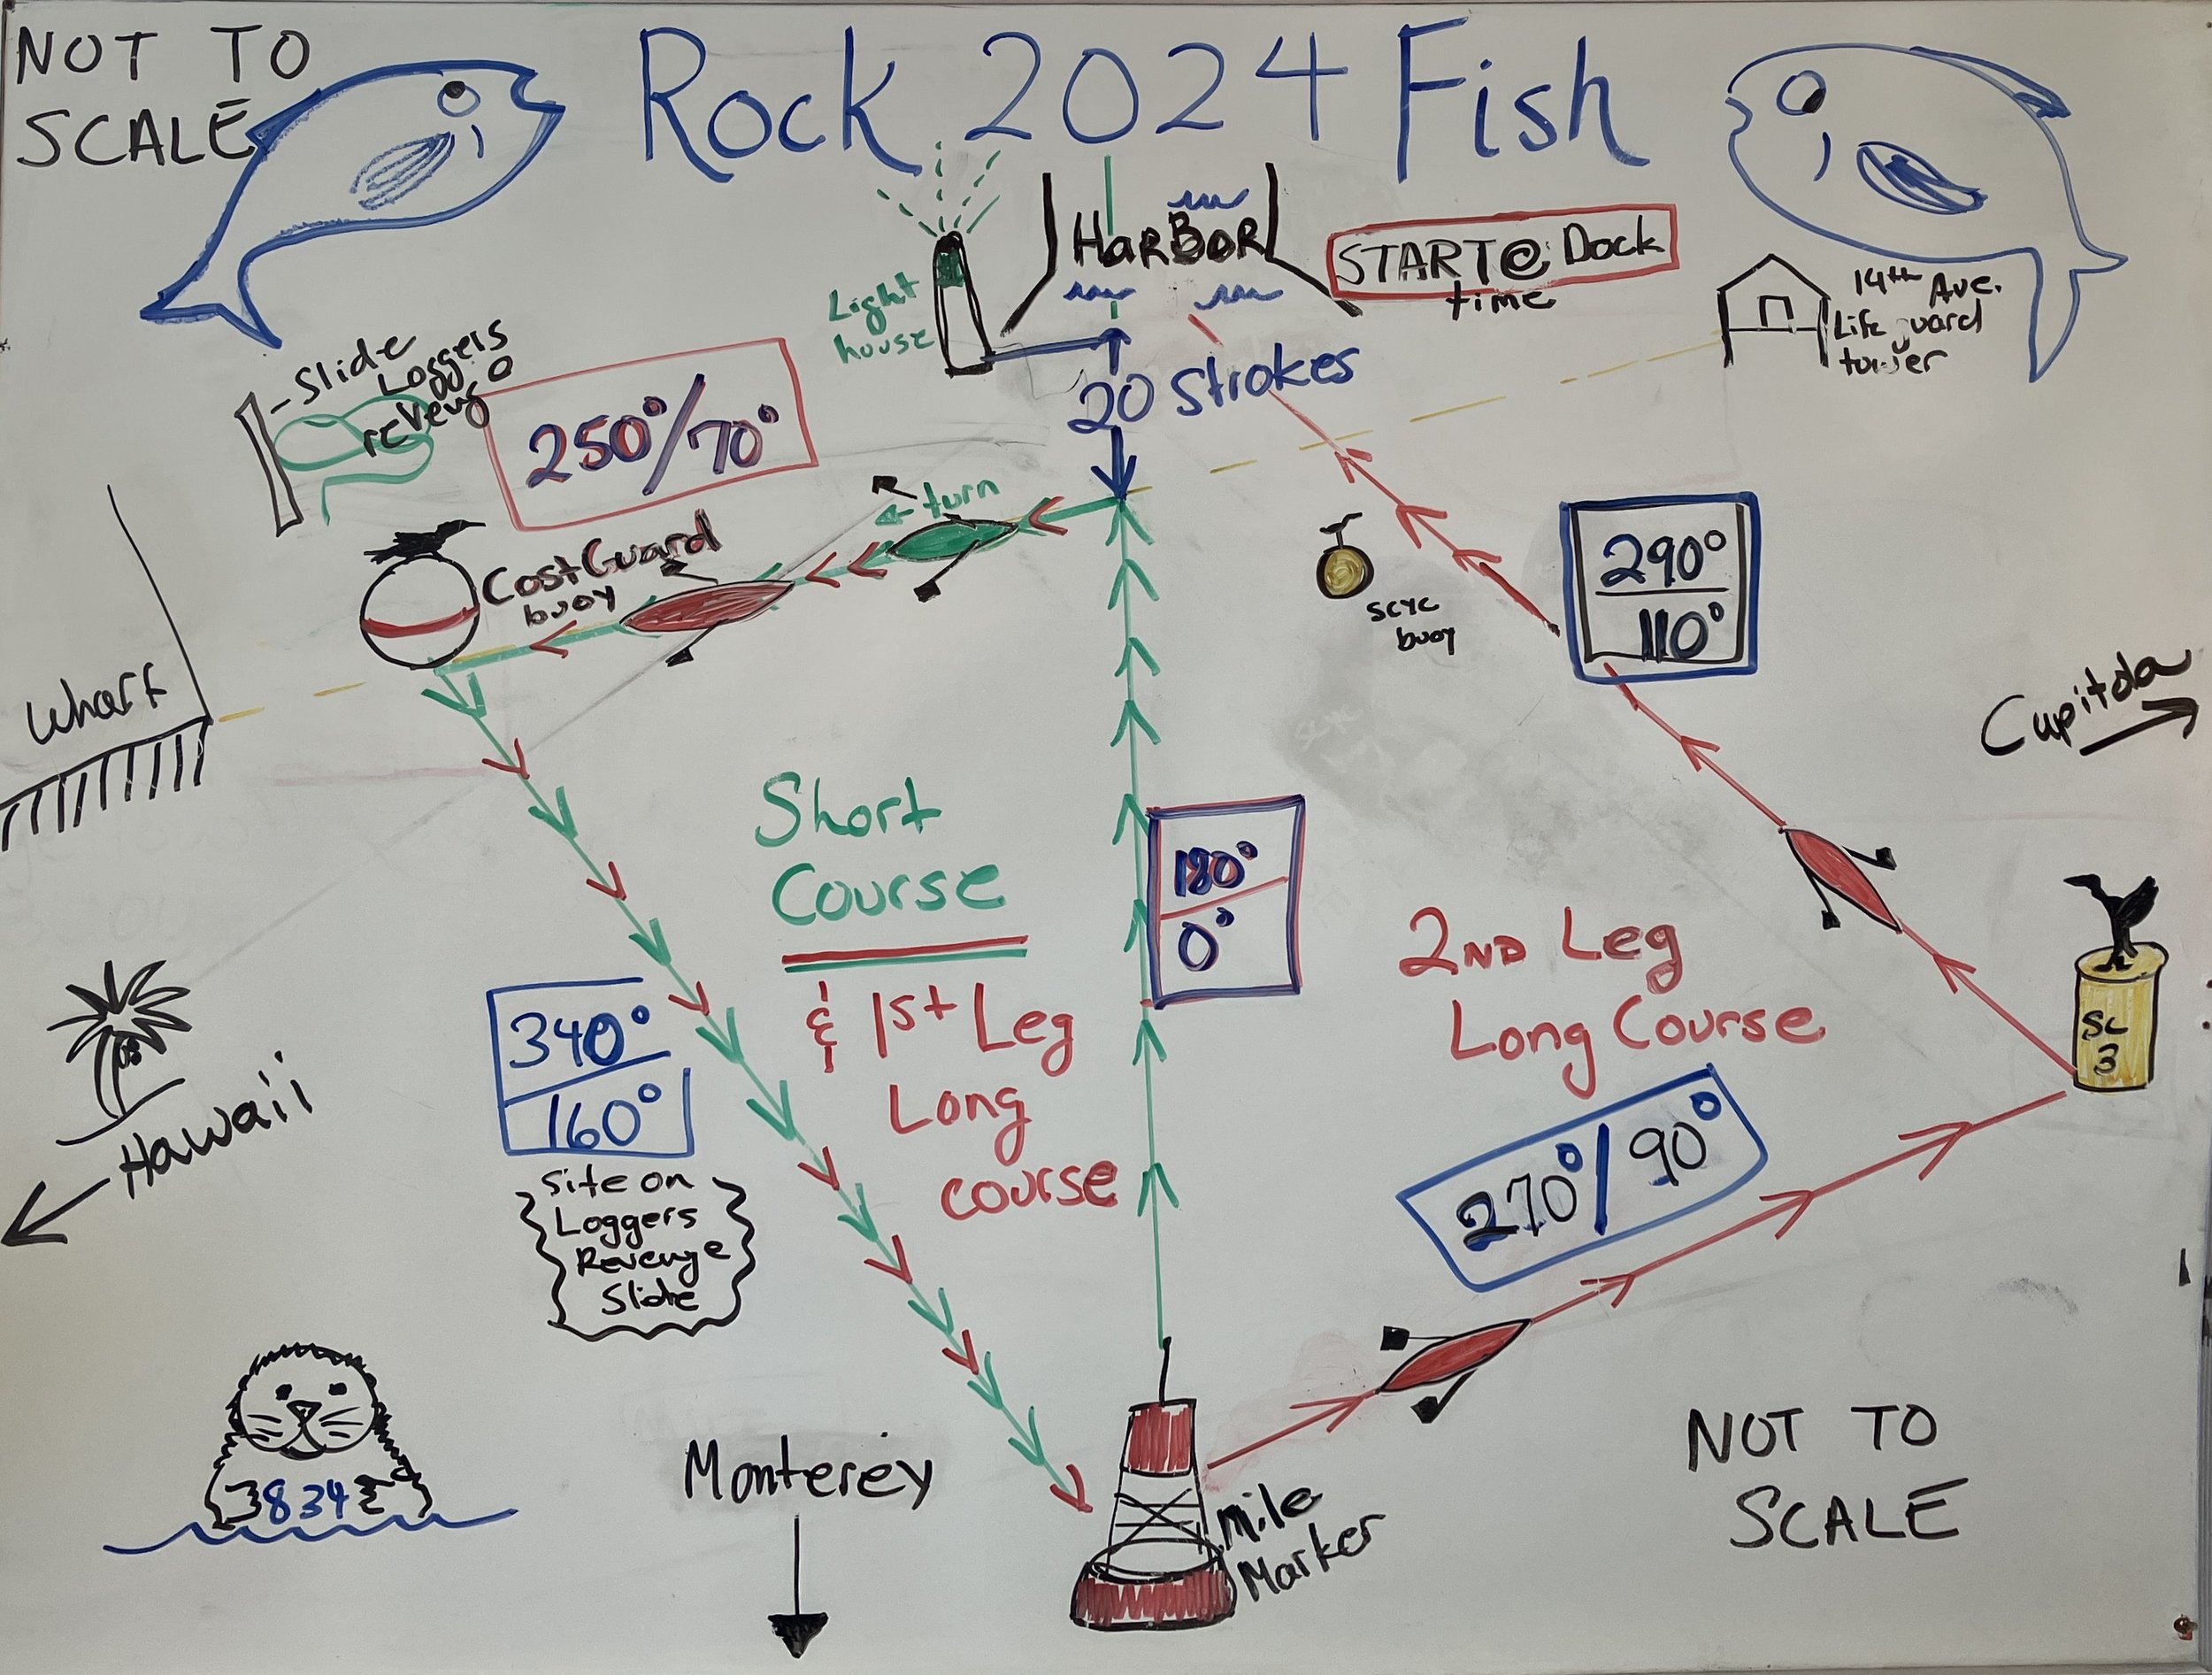 NOT TO
SCALE
Rock 2024 Fish
HarBOR
START @ Dock
time
Light
house
14th Ave.
Life guard
tower
Slide
Loggers
revenge
250°/70°
20 Strokes
turn
CostGuard
buoy
scyc
buoy
290°
110°
Wharf
Cupitola
Short
Course
& 1st Leg
Long
course
180°
0°
2ND Leg
Long Course
SC
3
340°
160°
Site on
Loggers
Revenge
Slide
270°/90°
Hawaii
Monterey
834
Mile
Marker
NOT TO
SCALE